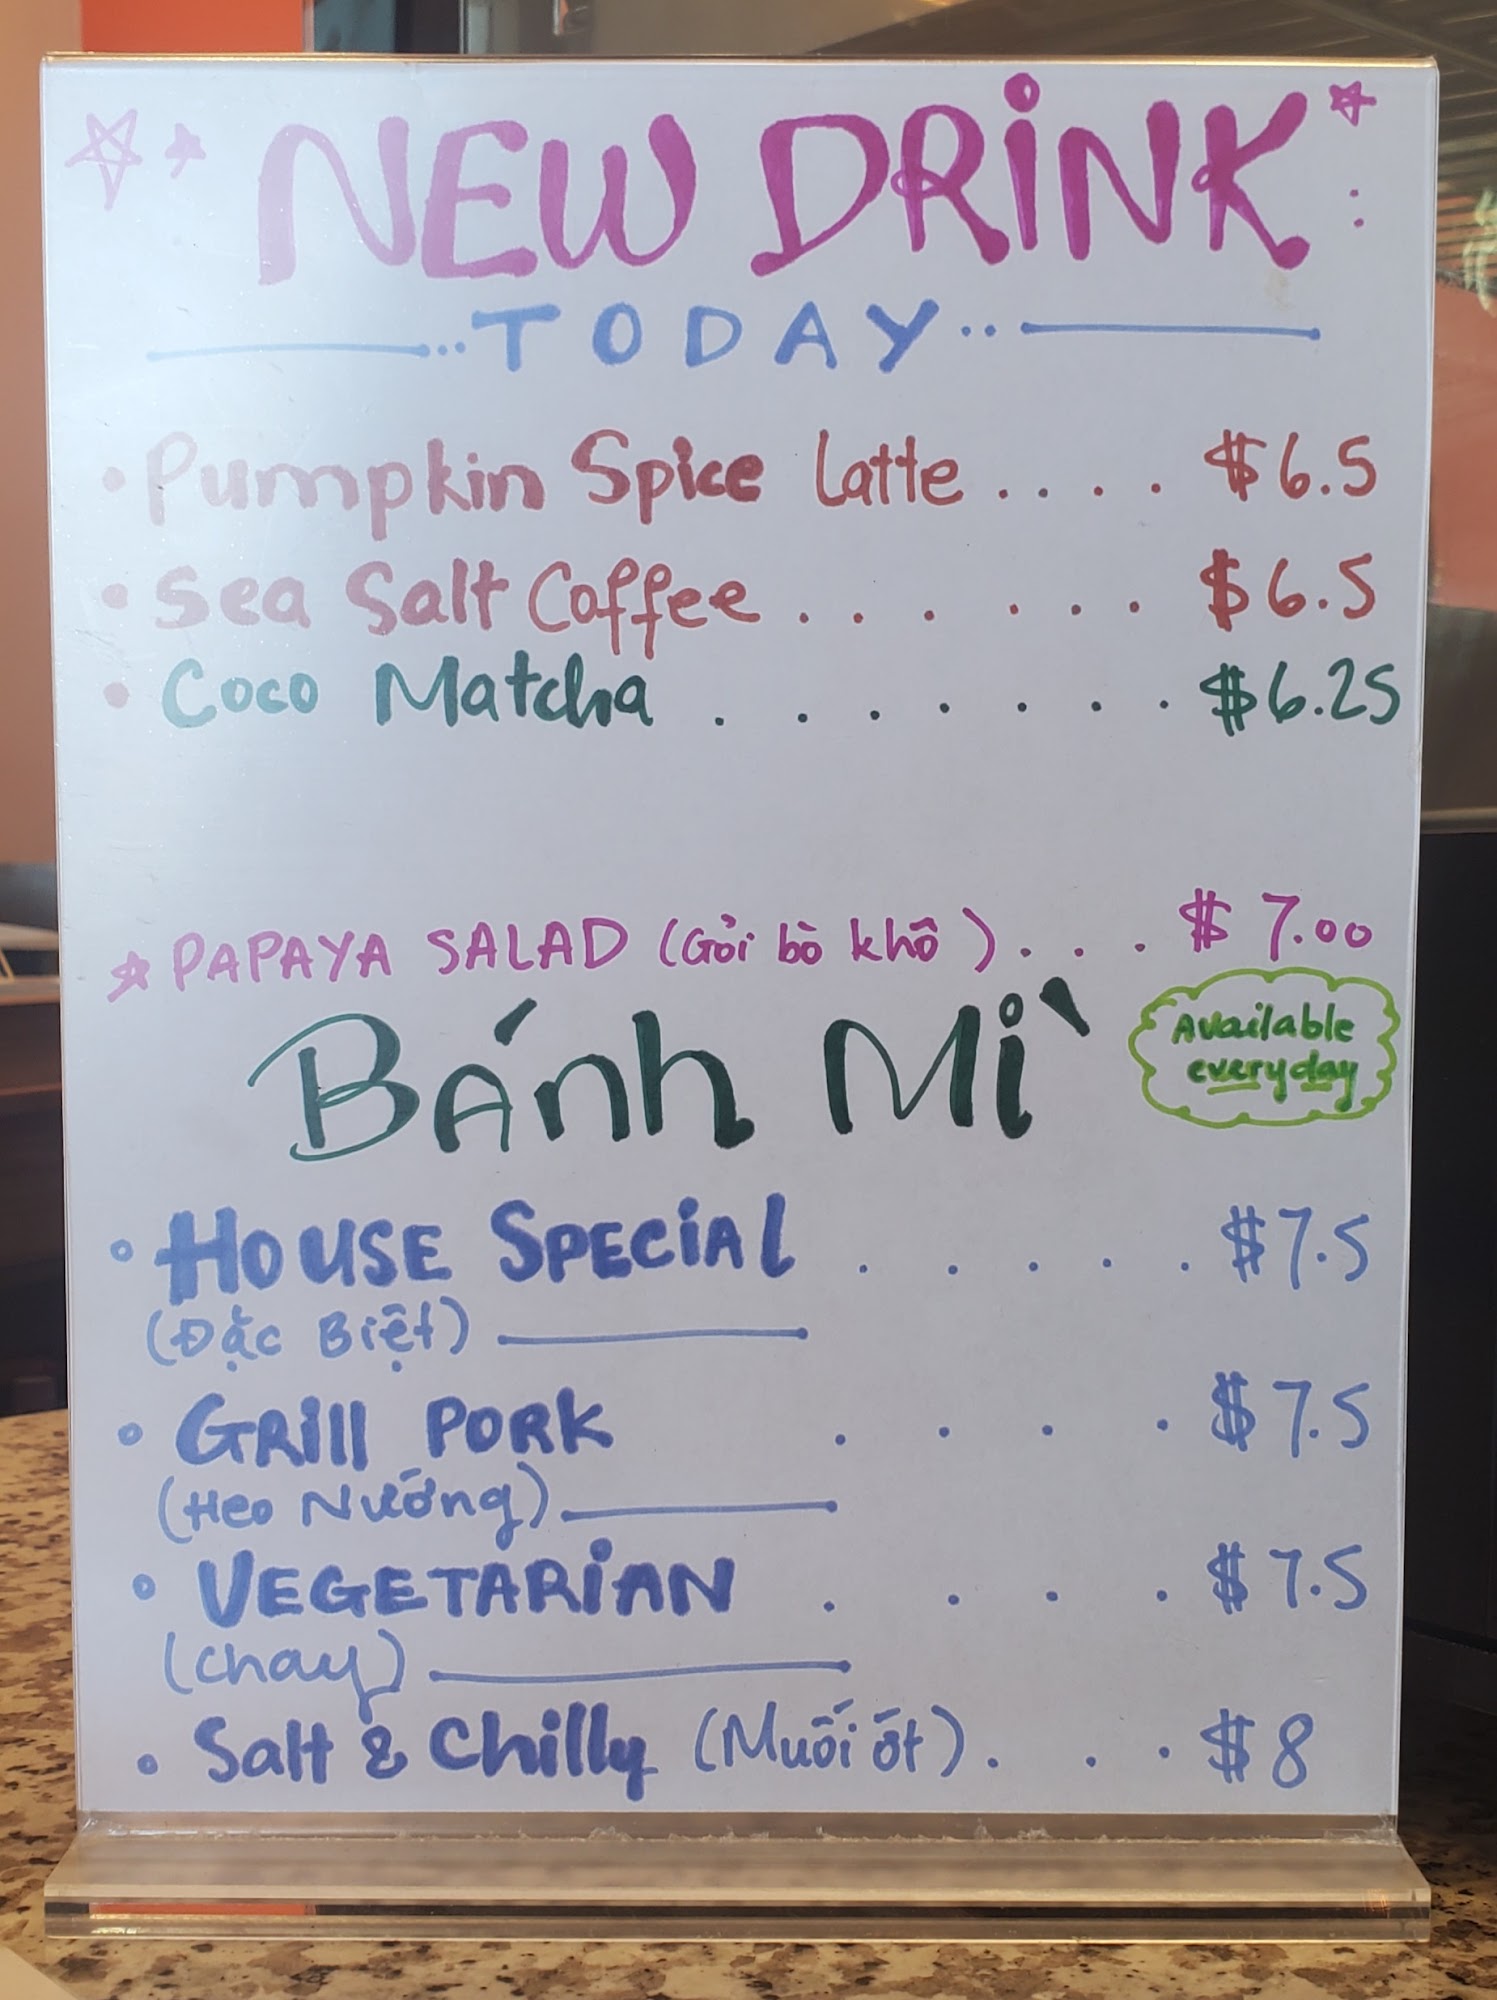 NEW DRINK
TODAY
Pumpkin Spice Latte .... $6.5
Sea Salt Coffee ...... $6.5
Coco Matcha ....... $6.25
PAPAYA SALAD (Gỏi bò khô)... $7.00
Bánh Mì
Available
everyday
HOUSE SPECIAL ..... $7.5
(Đặc Biệt)
GRILL PORK .... $7.5
(Heo Nướng)
VEGETARIAN .... $7.5
(Chay)
Salt & Chilly (Muối ớt)... $8